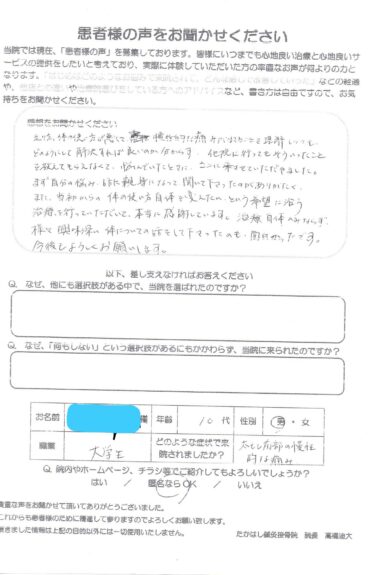 患者様の声をお聞かせください
当院では現在、「患者様の声」を募集しております。皆様にいつまでも心地良い治療と心地良いサ
ービスの提供をしたいと考えており、実際に体験していただいた方の率直なお声が何よりの力と
なります。「はじめはどのようなお悩みで来院されて、どんな感じで改善していった」などの経過
や、他店との違いや当院を選びをしている方へのアドバイスなど、書き方は自由ですので、お気
持ちをお聞かせください。
感想をお聞かせください
どのようにして解決すれば良いのか分からず、他院に行ってもそういったこと
教えてもらえなくて、悩んでいたときに、こちらに来させていただきました。
まず自分の悩み、話に親身になって聞いて下さったのがありがたく、
また、当初からの体の使い方自体を変えたい、という希望に沿う
治療を行っていただいて、本当に感謝しています。治療自体のみならず、
様々興味深い体についての話をして下さったのも、面白かったです。
今後ともよろしくお願いします。
以下、差し支えなければお答えください
Q. なぜ、他にも選択肢がある中で、当院を選ばれたのですか？
Q. なぜ、「何もしない」という選択肢があるにもかかわらず、当院に来られたのですか？
お名前 様 年齢 10代 性別 男・女
職業 大学生 どのような症状で来院されましたか？ 太もも肩部の慢性的な痛み
Q. 院内やホームページ、チラシ等でご紹介してもよろしいでしょうか？
はい / 匿名ならOK / いいえ
貴重な声をお聞かせて頂いてありがとうございました。
これからも患者様のために精進して参りますのでよろしくお願い致します。
頂きました情報は上記の目的以外には一切使用いたしません。
たかはし鍼灸接骨院 院長 高橋迪大